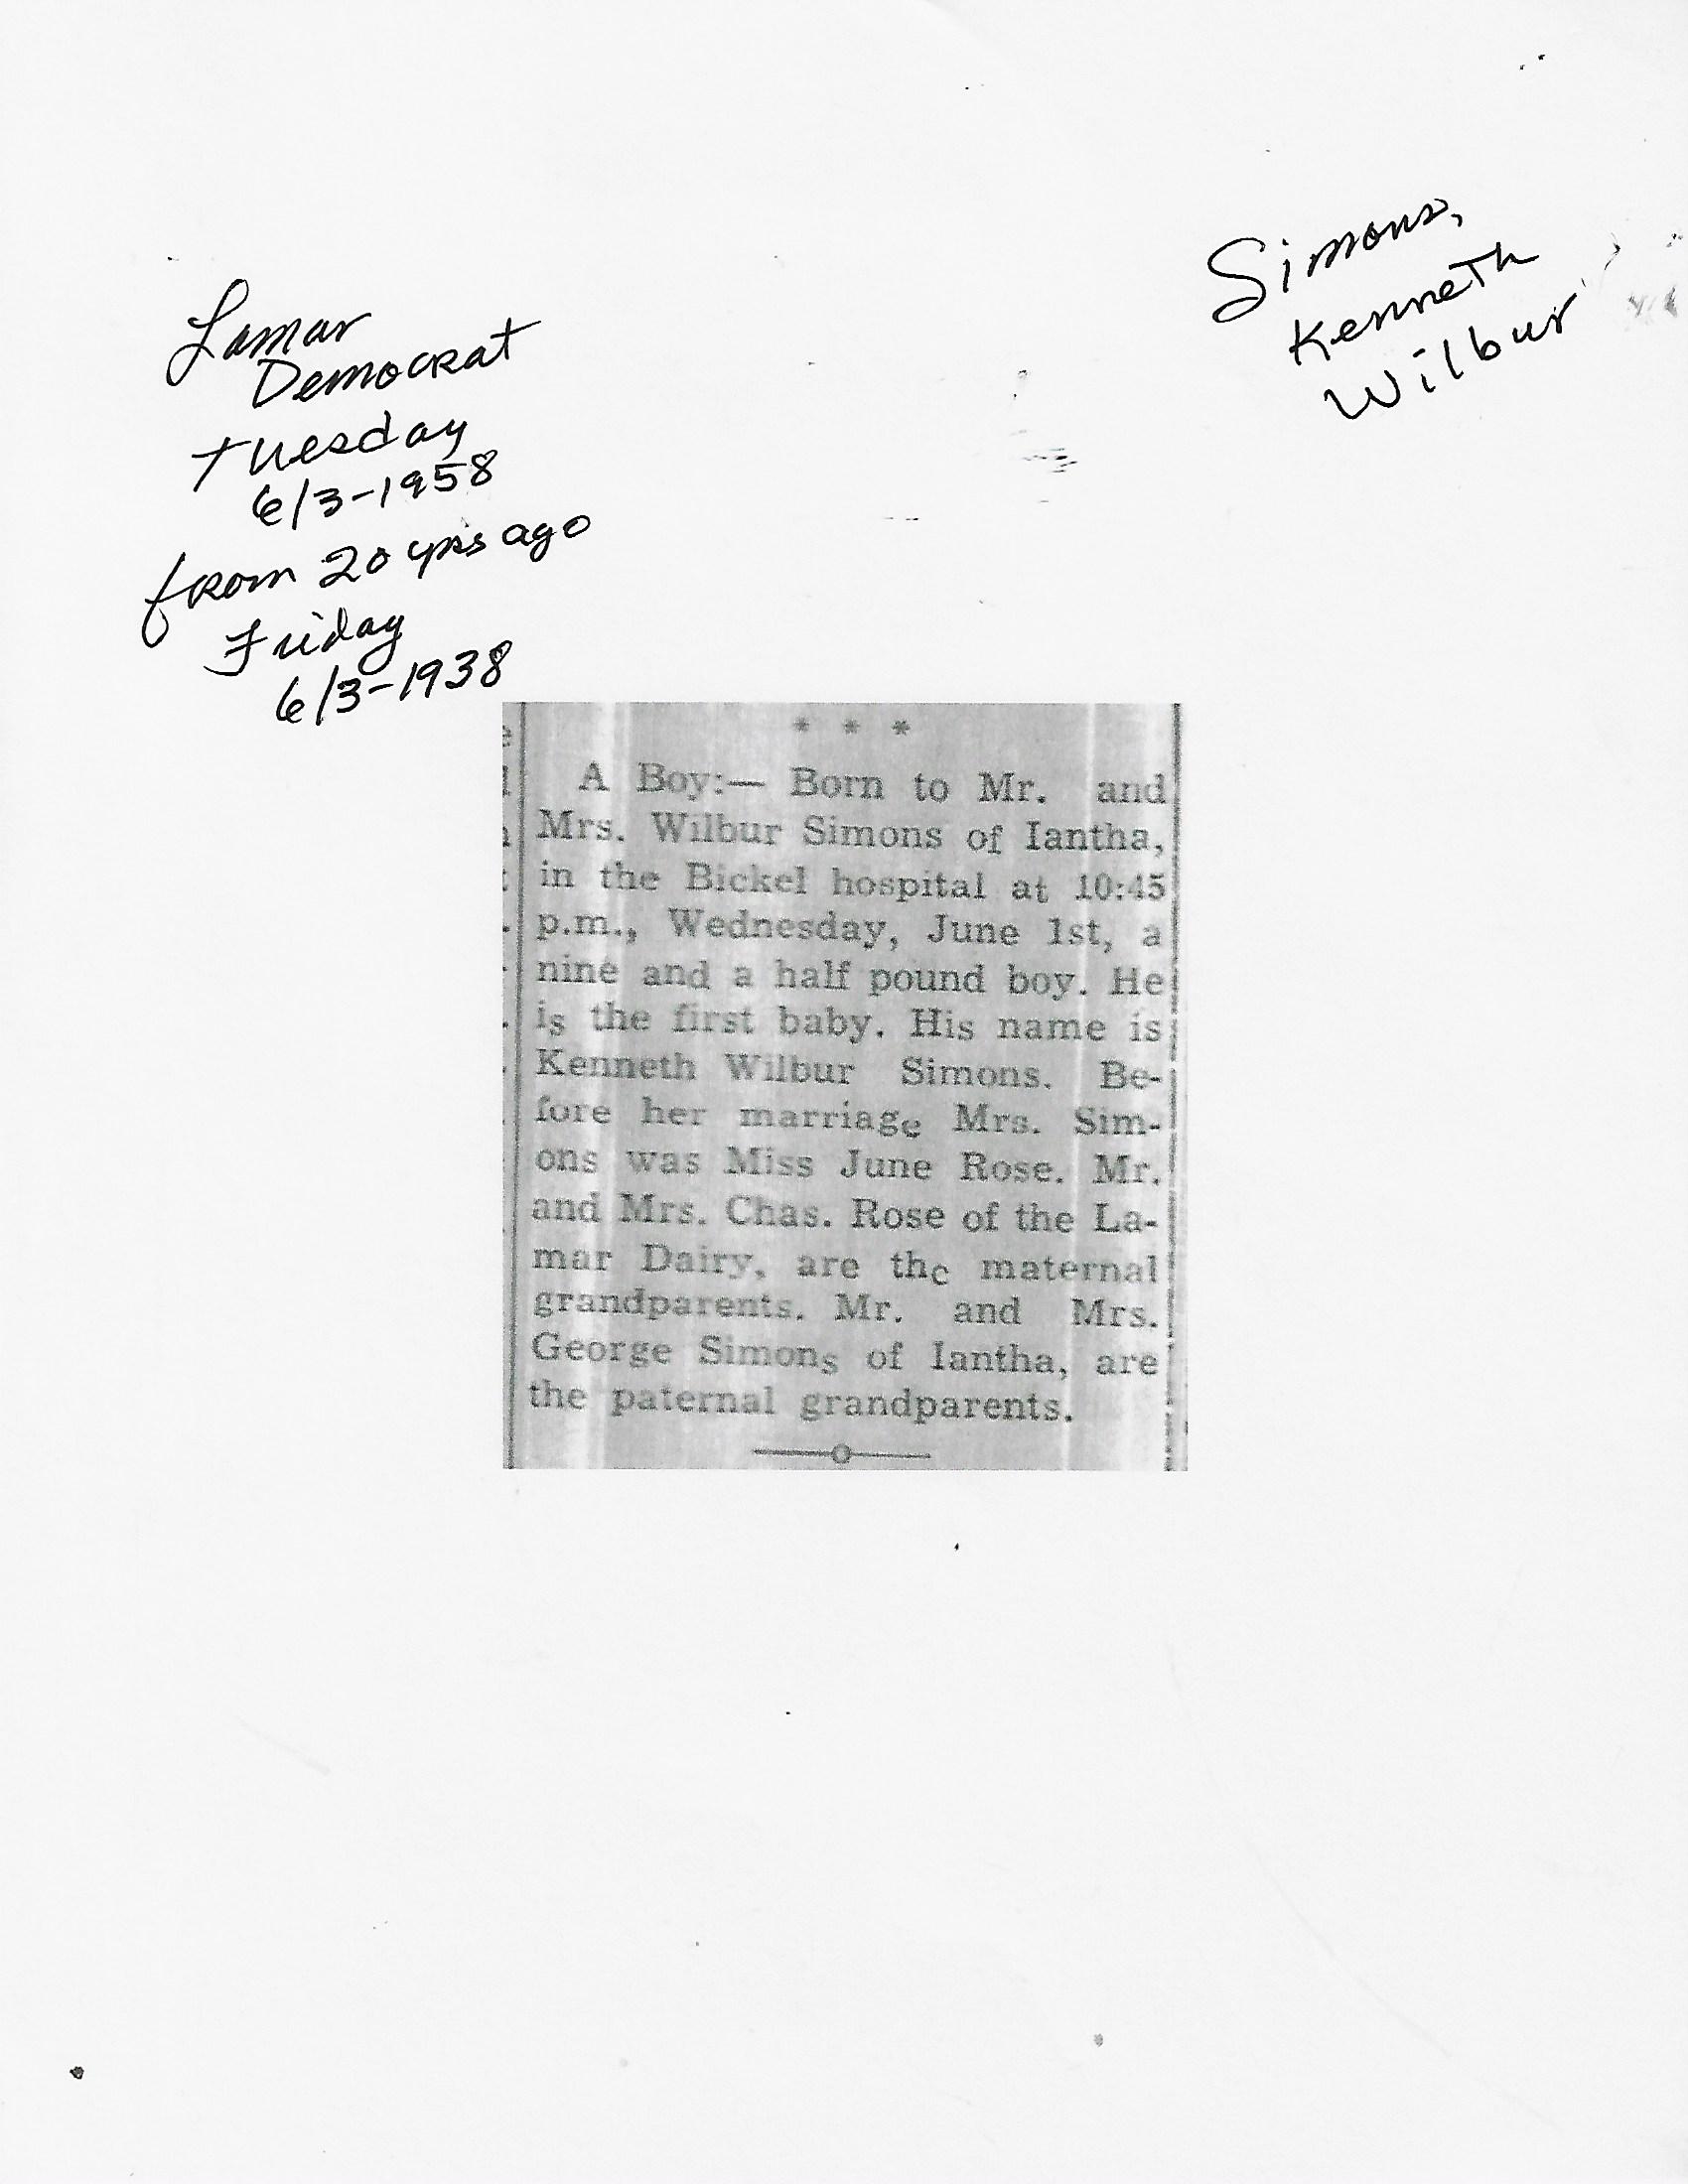 Simons,
Kenneth
Wilbur
Lamar
Democrat
Tuesday
6/3-1958
from 20 yrs ago
Friday
6/3-1938
* * *
A Boy:— Born to Mr. and
Mrs. Wilbur Simons of Iantha,
in the Bickel hospital at 10:45
p.m., Wednesday, June 1st, a
nine and a half pound boy. He
is the first baby. His name is
Kenneth Wilbur Simons. Be-
fore her marriage Mrs. Sim-
ons was Miss June Rose. Mr.
and Mrs. Chas. Rose of the La-
mar Dairy, are the maternal
grandparents. Mr. and Mrs.
George Simons of Iantha, are
the paternal grandparents.